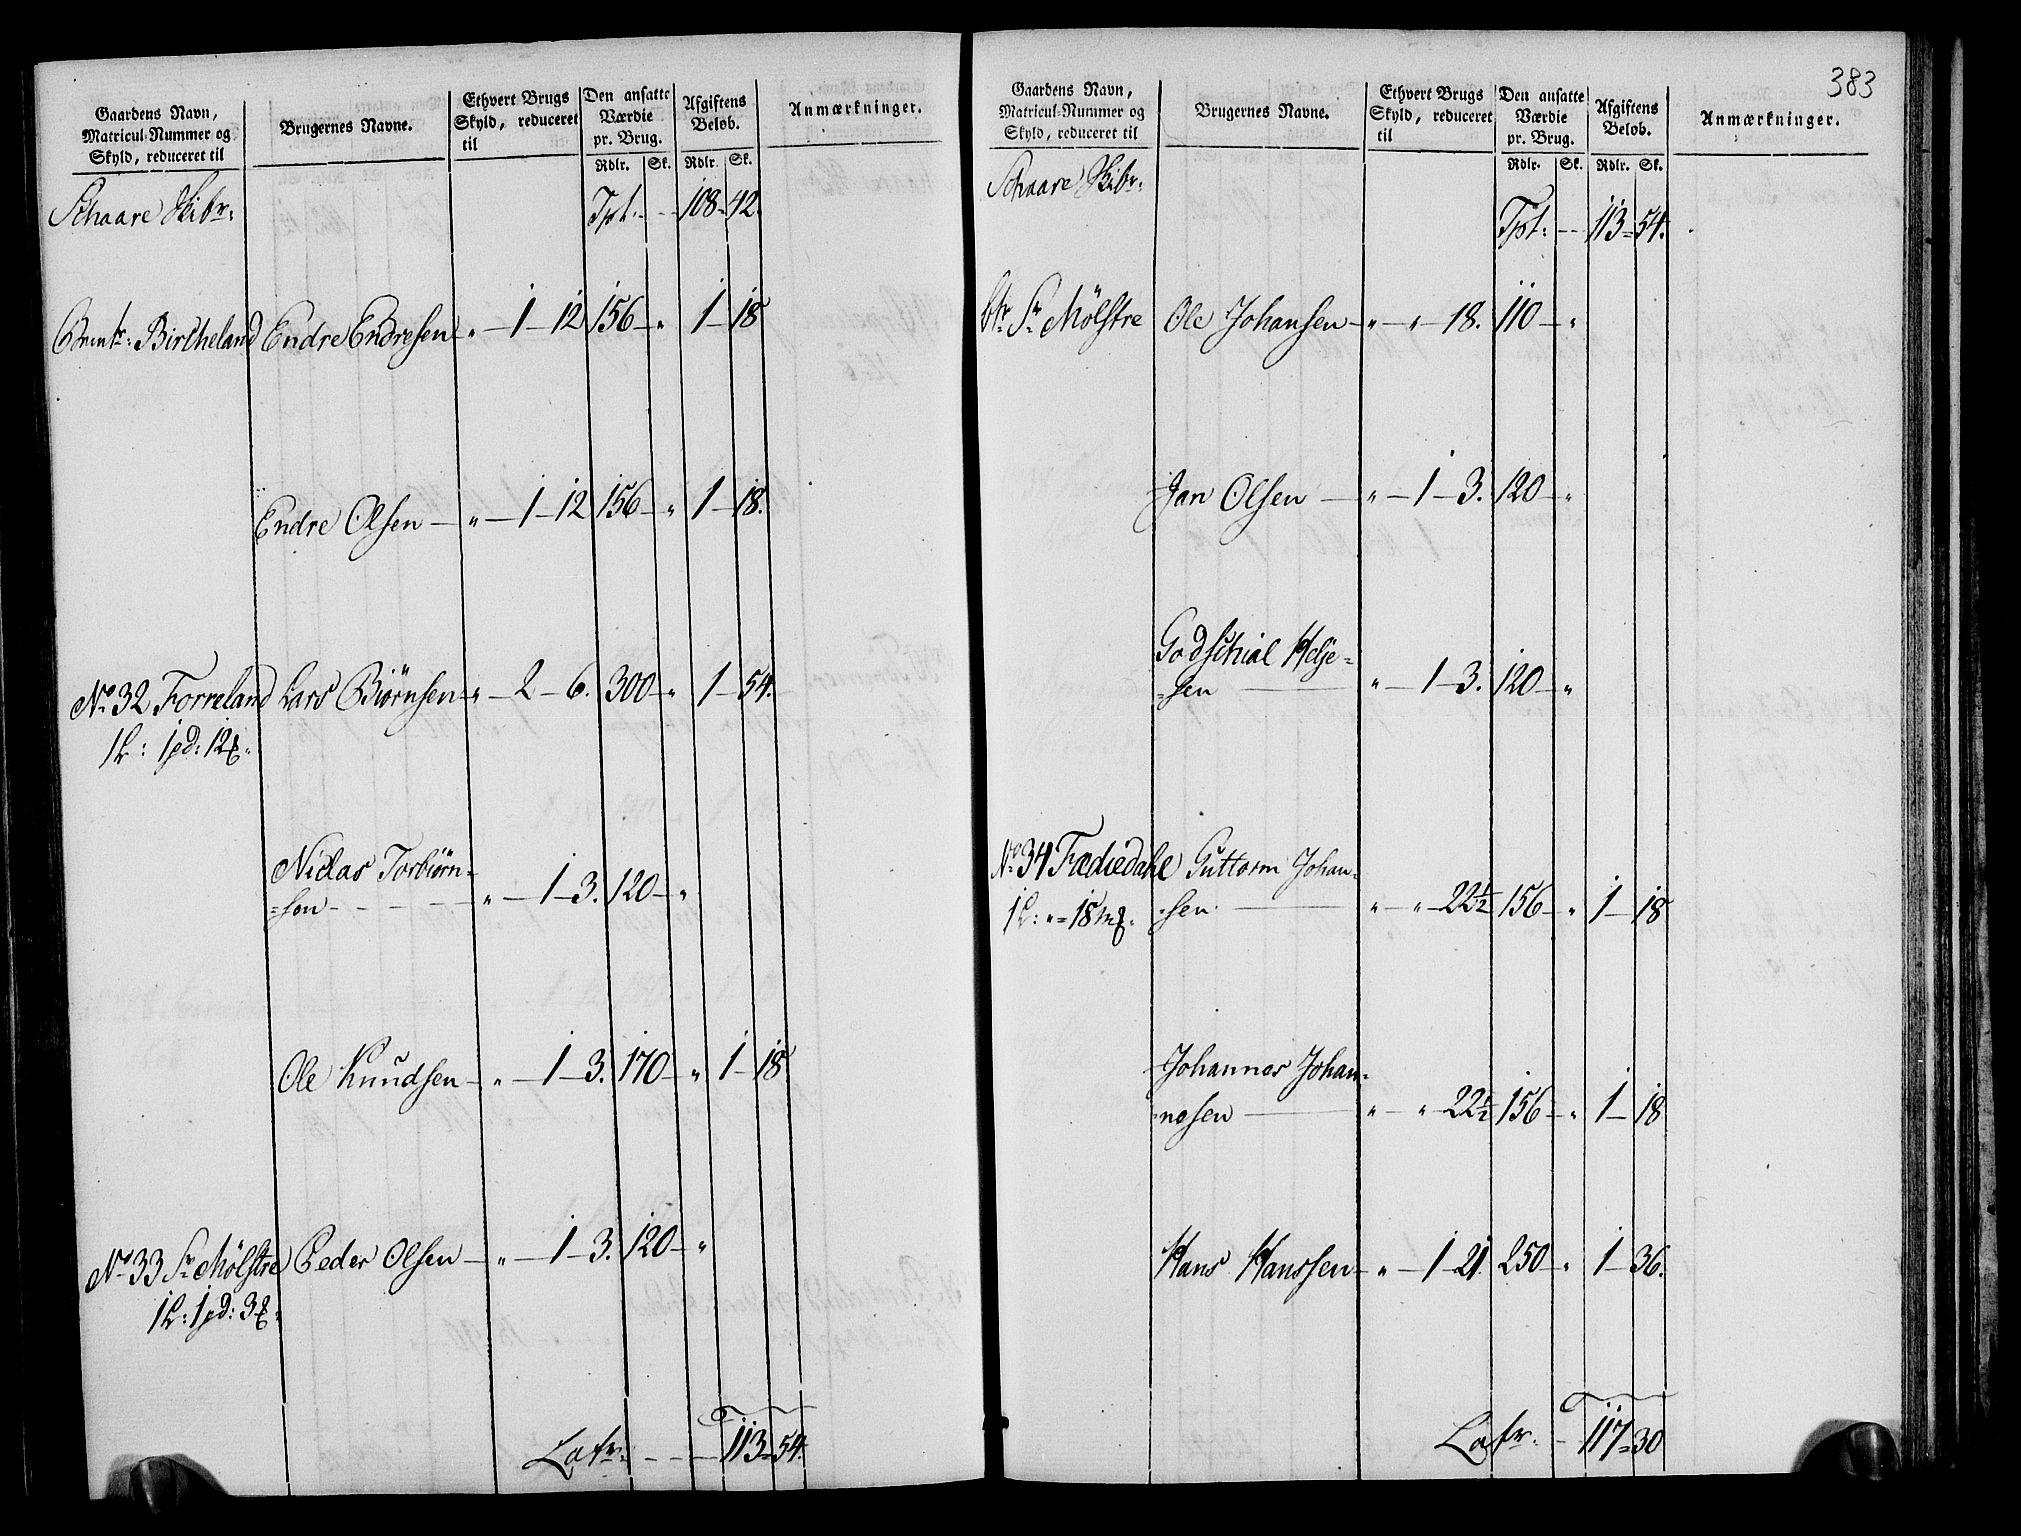 Gaardens Navn, Matricul-Nummer og Skyld, reduceret til
Brugernes Navne.
Ethvert Brugs Skyld, reduceret til
Den ansatte Værdie pr. Brug. Rdlr. Sk.
Afgiftens Beløb. Rdlr. Sk.
Anmærkninger.
Schaare Skibr: Tpt: - - 108 - 42.
Birtheland Endre Endresen - " - 1 - 12 156 - " 1 - 18
Endre Olsen - " - 1 - 12 156 - " 1 - 18.
No 32 Forreland Lars Biørnsen - " - 2 - 6. 300 - " 1 - 54.
1 L: 1 pd: 12
Niclas Torbiørn=
=sen - - - - " - 1 - 3. 120 - "
Ole Knudsen - " - 1 - 3. 170 - " 1 - 18
No 33 Sr Mölstre Peder Olsen - " - 1 - 3. 120 - "
1 L: 1 pd: 3
Latr: - - - 113 = 54.
383
Gaardens Navn, Matricul-Nummer og Skyld, reduceret til
Brugernes Navne.
Ethvert Brugs Skyld, reduceret til
Den ansatte Værdie pr. Brug. Rdlr. Sk.
Afgiftens Beløb. Rdlr. Sk.
Anmærkninger.
Schaare Skibr:
Tpt: - - 113 = 54.
Sr Mölstre Ole Johansen - " - " - 18. 110 - "
Jan Olsen - " - 1 - 3. 120 - "
Godschial Helje=
=sen - " - 1 - 3. 120 - "
No 34 Fædiedahl Guttorm Johan=
1 L: " = 18 =sen - " - " - 22½ 156 - " 1 - 18
Johannes Johan=
=nesen - " - " - 22½ 156 - " 1 - 18
Hans Hanssen - " - 1 - 21. 250 - " 1 - 36.
Latr: - 117 = 30